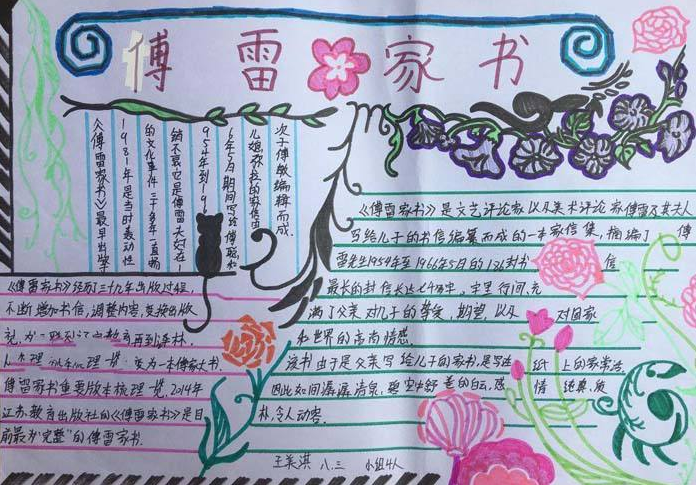 傅雷家书
《傅雷家书》最早出版于
1981年是当时轰动性
的文化事件三十多年一直畅
销不衰它是傅雷夫妇在1
954年到19
6年5月期间写给傅聪和
儿媳弥拉的家信由
次子傅敏编辑而成
《傅雷家书》是文艺评论家以及美术评论家傅雷及其夫人
写给儿子的书信编纂而成的一本家信集,摘编了傅
雷先生1954年至1966年5月的186封书信
最长的封信长达七千多字,字里行间,充
满了父亲对儿子的挚爱,期望,以及对国家
和世界的高尚情感
该书由于是父亲写给儿子的家书,是写在纸上的家常话,
因此如间潺潺清泉,碧空中舒卷的白云,感情纯真,质
朴,令人动容.
《傅雷家书》经历了三十九年出版过程,
不断增加书信,调整内容,变换出版
再到
变为一本傅家大书.
傅雷家书重要版本梳理一览,2014年
江苏教育出版社的《傅雷家书》是目
前最为"完整"的傅雷家书.
王美淇 八.三 小组4人